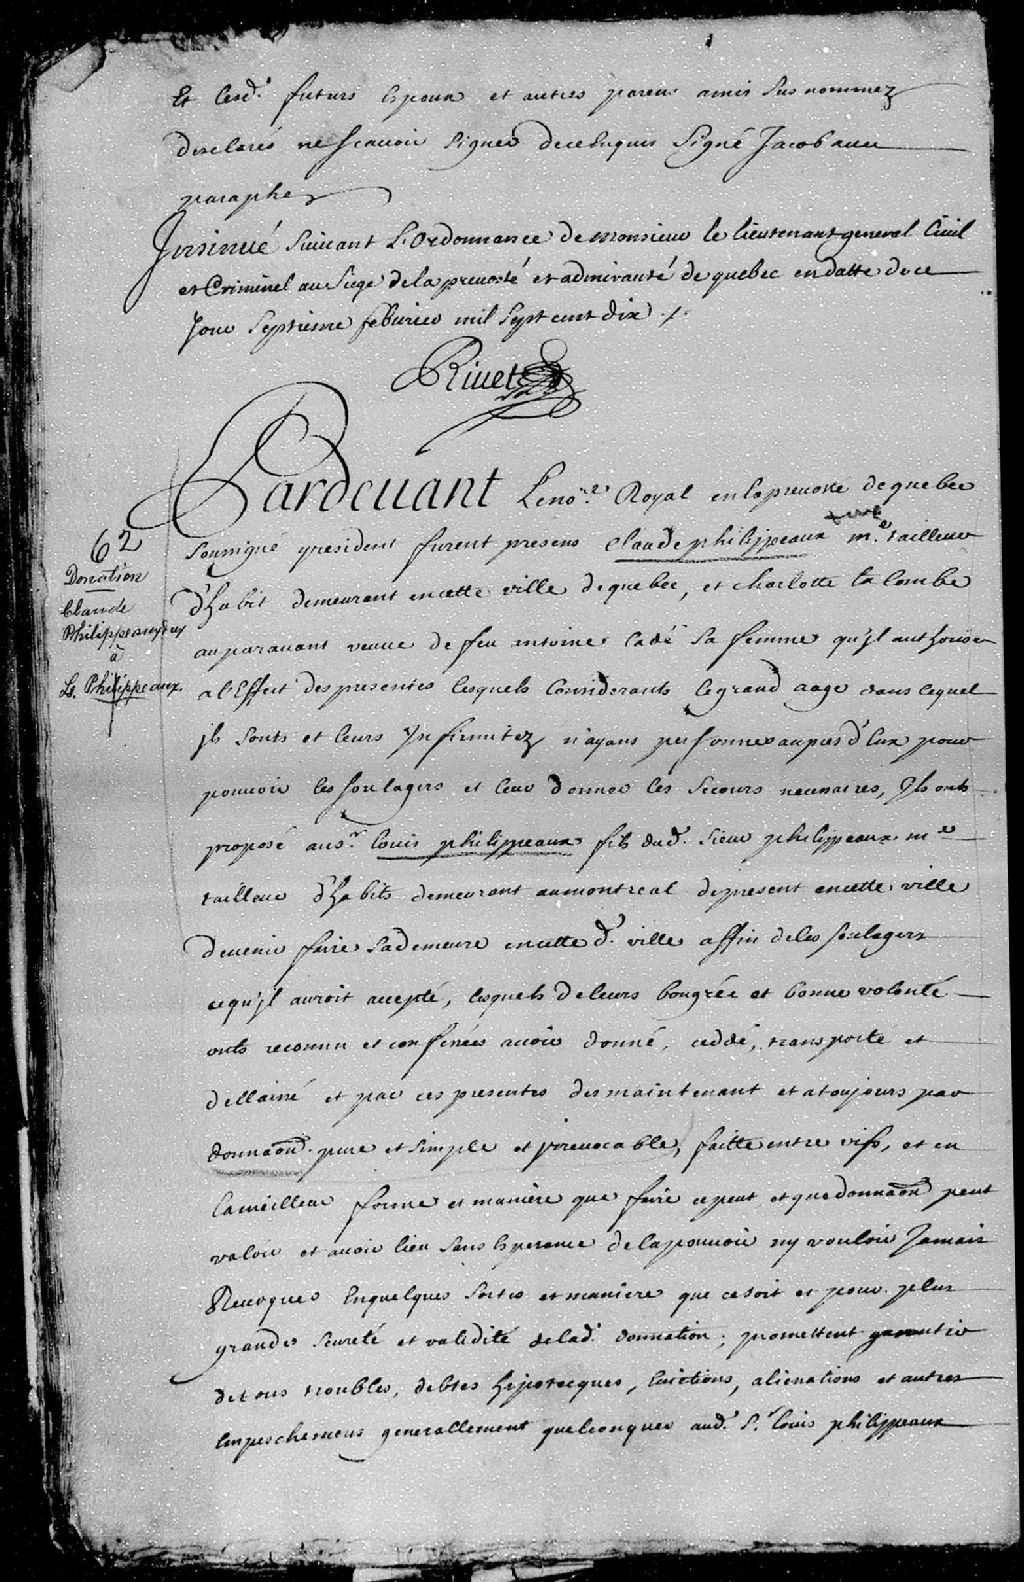 Et lesd.s futurs Epoux et autres parens amis susnommez
declarés ne scavoir signer decelnquis Signé Jacob avec
paraphe
Insinué suivant L'Ordonnance de monsieur le lieutenant general Civil
et Criminel au siege de la prevosté et admirauté de quebec en datte de ce
Jour Septieme febvrier mil sept cent dix ./.
Rivet
Pardevant Le no.re Royal en la prevosté de quebec
soussigné y resident furent presens Claude philippeaux m.e tailleur
62
Donation
Claude
Philippeaux
à
Ls. Philippeaux
d'habit demeurant en cette ville de quebec, et charlotte la Combe
auparavant veuve de feu antoine Cadé sa femme qu'jl authorise
a l'Effect des presentes lesquels Considerants le grand aage dans lequel
jls sonts et leurs Jnfirmitez n'ayans personnes aupres d'Eux pour
pouvoir les soulagers et leur donner les secours necessaires, Jls onts
proposé au s.r Louis philippeaux fils dud. sieur philippeaux m.e
tailleur d'habits demeurant au montreal de present en cette ville
de venir faire sa demeure en cette d. ville affin de les soulagers
ce qu'jl auroit accepté, lesquels de leurs bongrée et bonne volonté
onts reconnu et confessées avoir donné, ceddé, transporté et
dellaissé et par ces presentes des maintenant et a toujours par
donnaon. pure et simple et jrevocable, faitte entre vifs, et en
la meilleur forme et maniere que faire ce peut et que donnaon peut
valoir et avoir lieu sans Esperance de la pouvoir ny vouloir Jamais
Revoquer En quelques sortes et maniere que ce soit et pour plus
grande seureté et validité de lad. donnation, promettent garentir
de tous troubles, debtes hipotecques, Evictions, alienations et autres
Empeschemens generallement quelconques aud. S.r Louis philippeaux